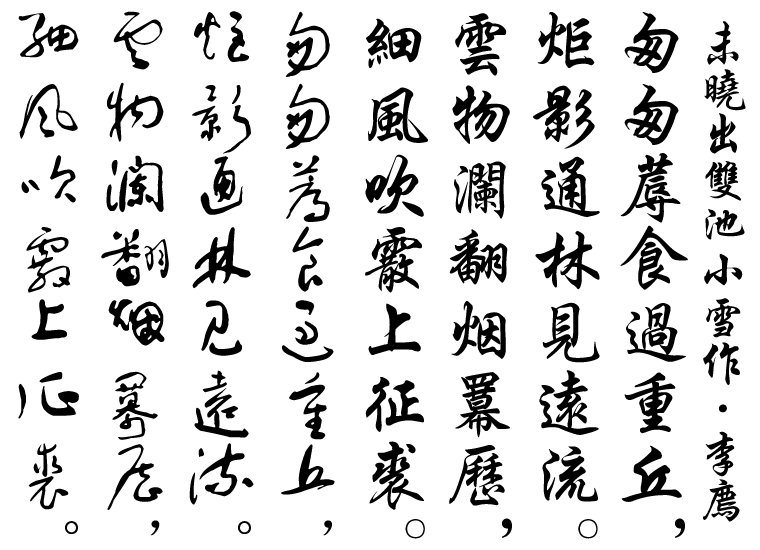 未曉出雙池小雪作·李廌
匆匆蓐食過重丘，
炬影通林見遠流。
雲物瀾翻烟羃歷，
細風吹霰上征裘。
匆匆蓐食過重丘，
炬影通林見遠流。
雲物瀾翻烟羃歷，
細風吹霰上征裘。